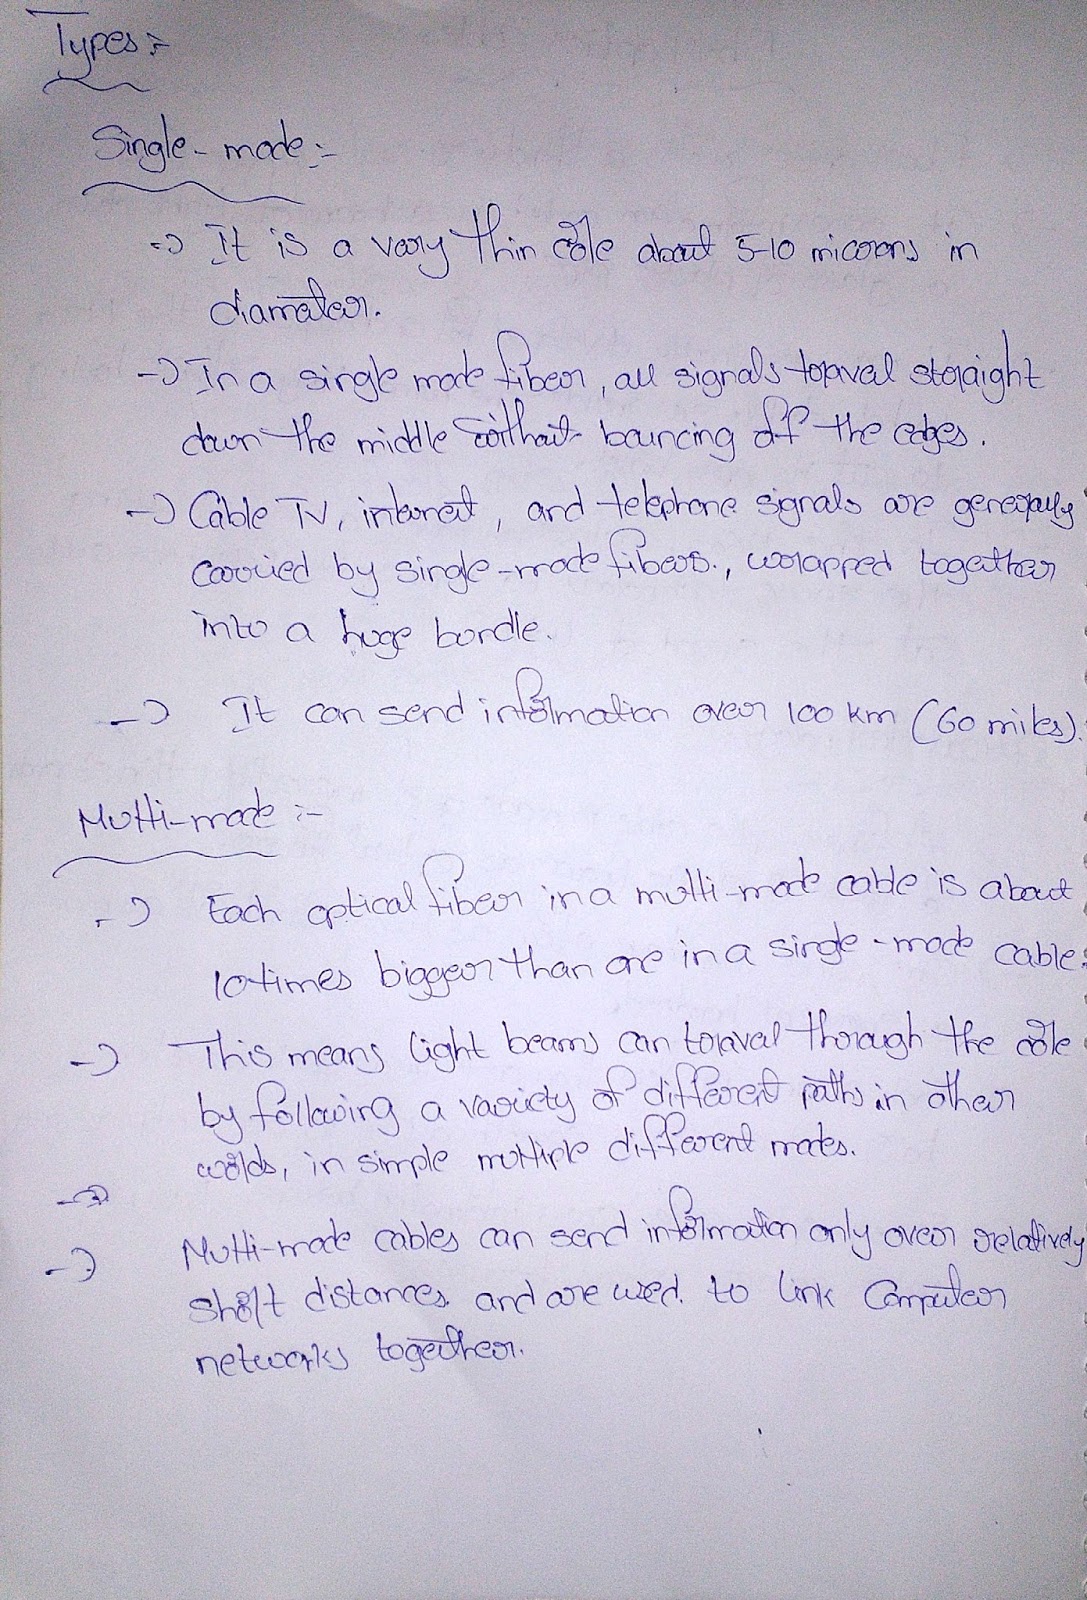 Types :-
Single-mode :-
=> It is a very thin core about 5-10 microns in
diameter.
-> In a single mode fiber, all signals travel straight
down the middle without bouncing off the edges.
-> Cable TV, internet, and telephone signals are generally
carried by single-mode fibers., wrapped together
into a huge bundle.
-> It can send information over 100 km (60 miles).
Multi-mode :-
-> Each optical fiber in a multi-mode cable is about
10 times bigger than one in a single-mode cable.
-> This means light beams can travel through the core
by following a variety of different paths in other
words, in simple multiple different modes.
->
-> Multi-mode cables can send information only over relatively
short distances. and are used. to link Computer
networks together.